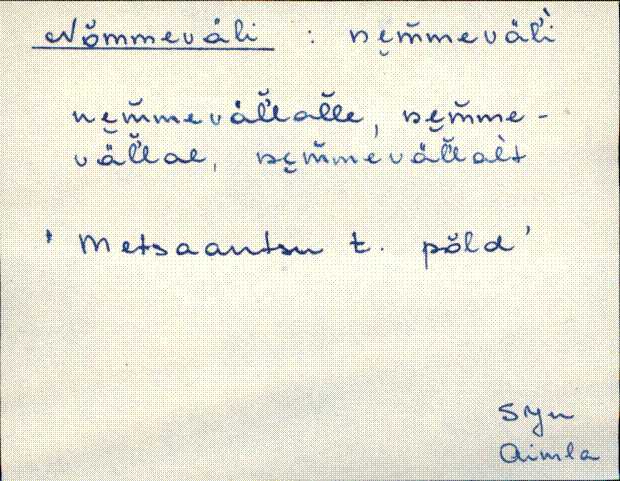 Nõmmeväli : nе̮m̆meväĺi
nе̮m̆meväĺ̆lal̆le, nе̮m̆me-
väĺ̆lal, nе̮m̆meväĺ̆lalt
' Metsaantsu t. põld '
Syn
Aimla